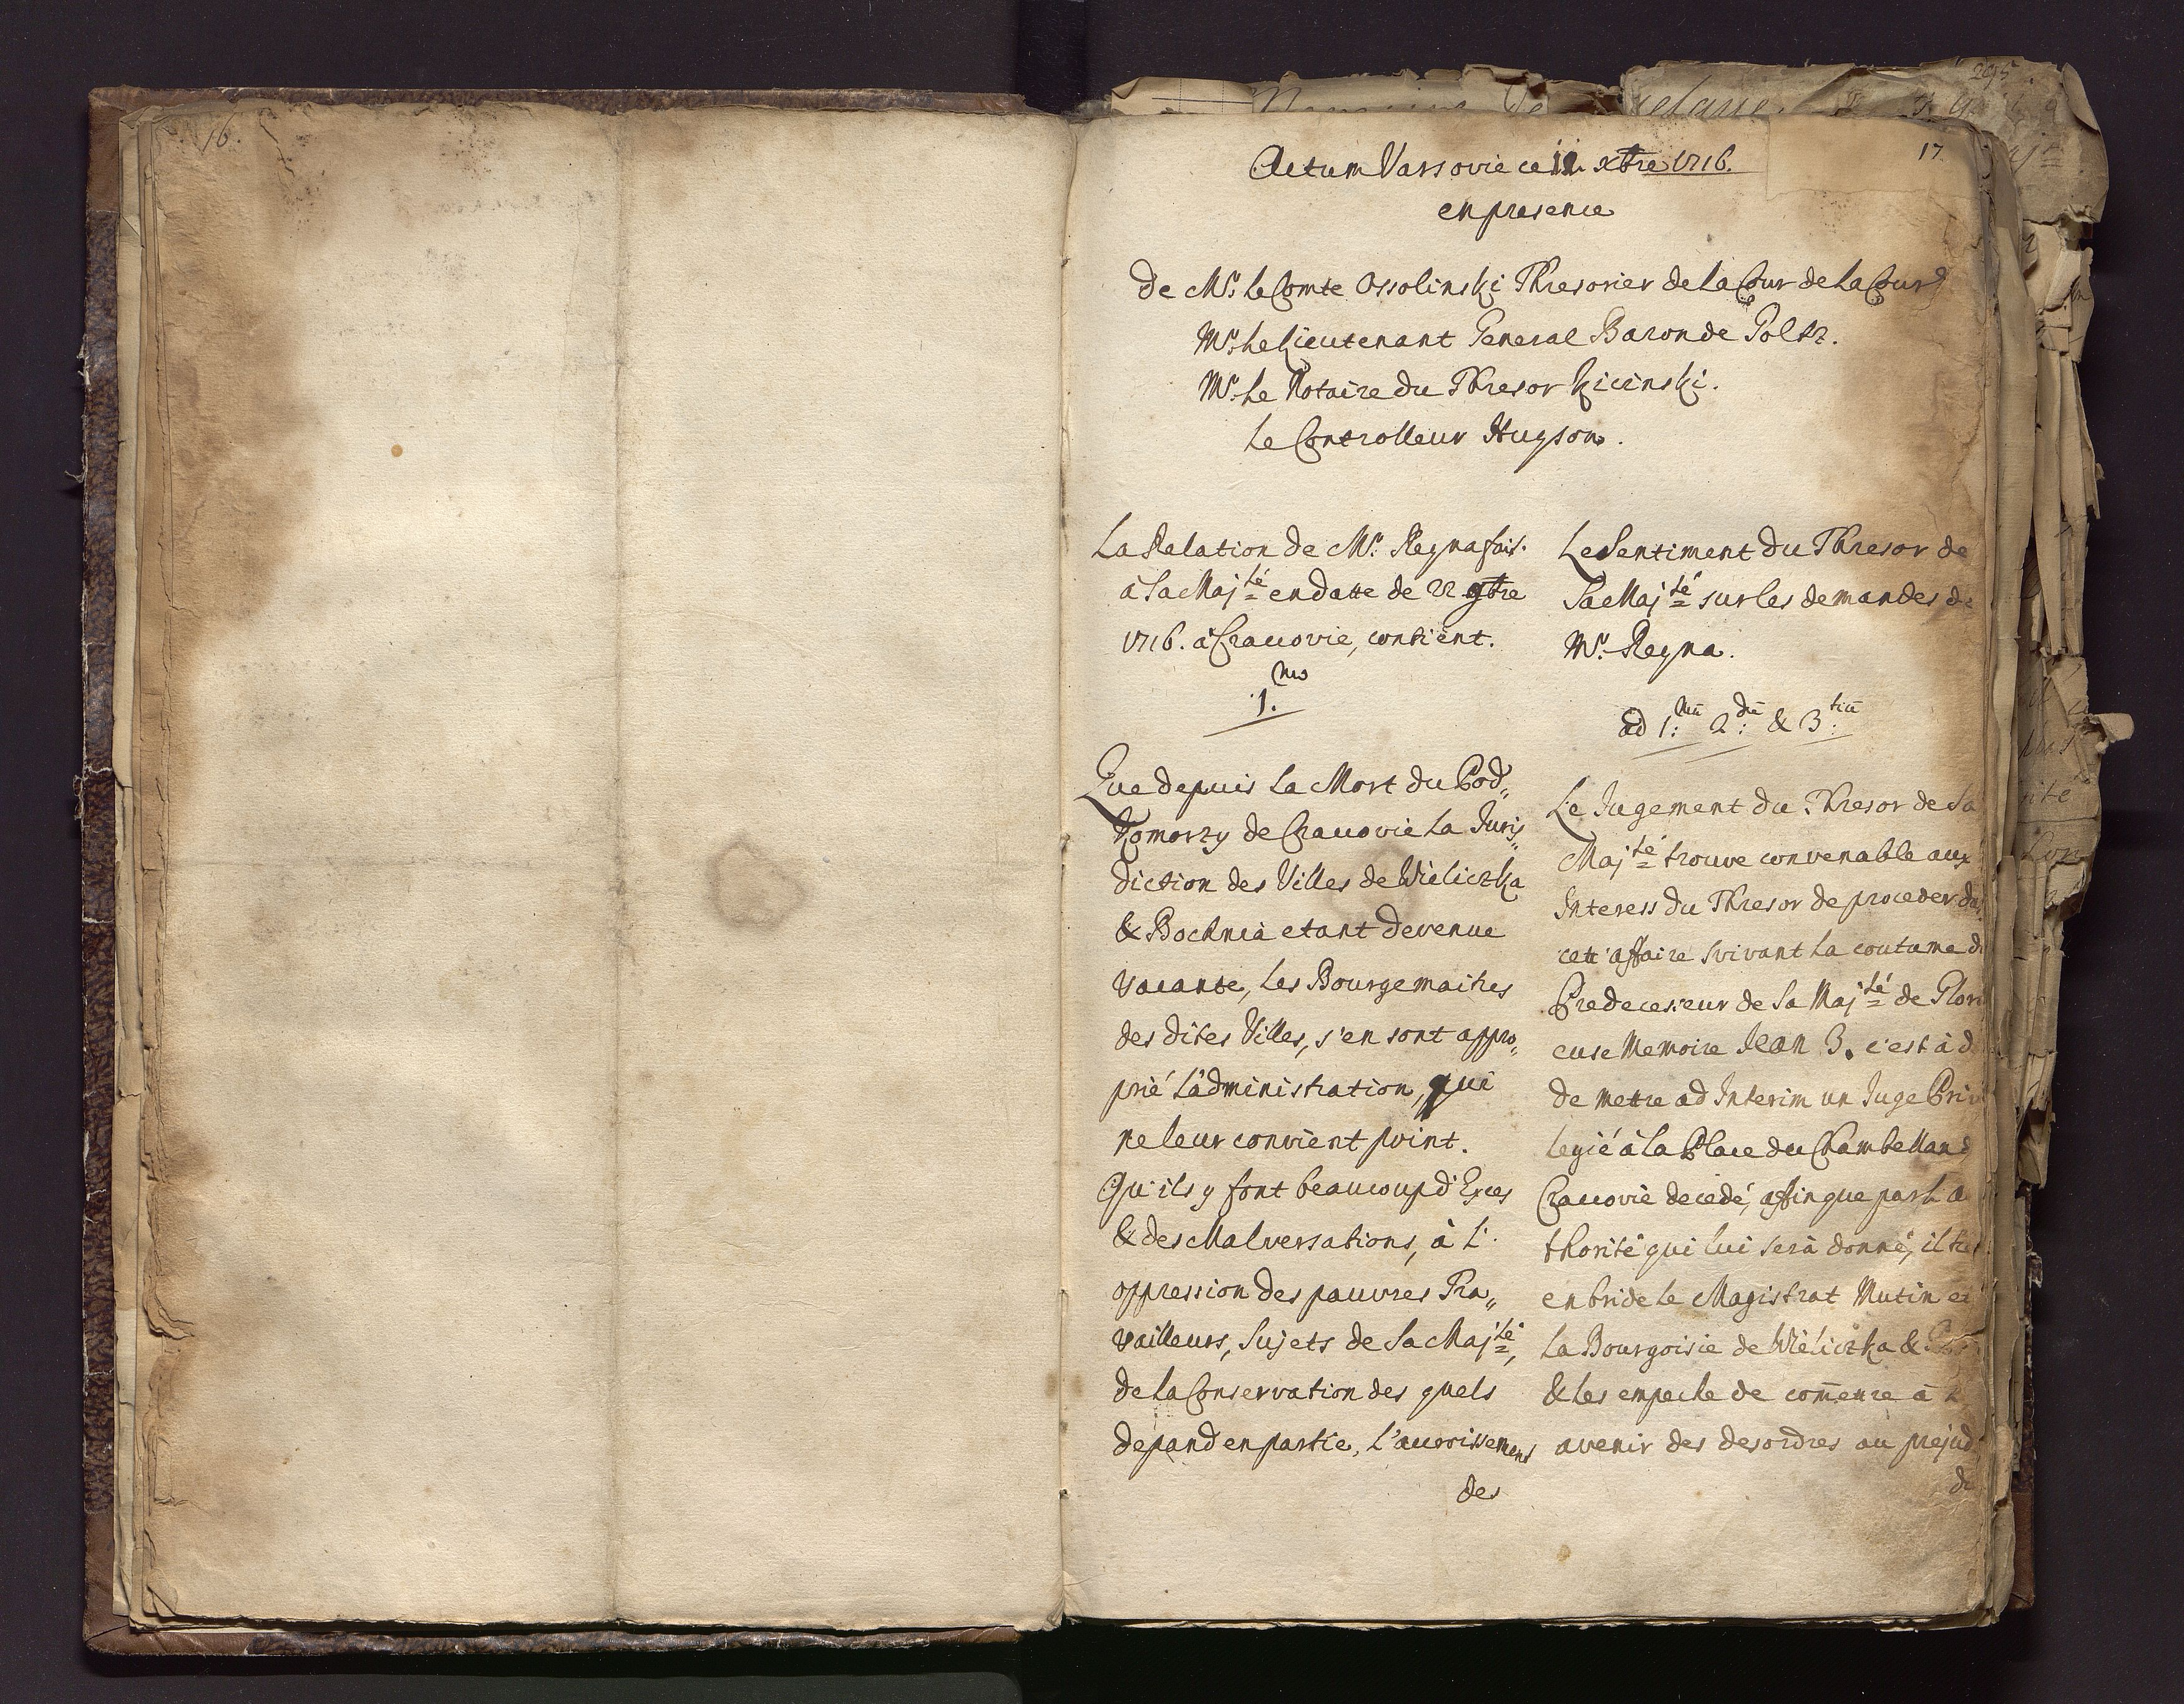 16.
17
Actum Varsovie ce 11. xbre 1716.
en presence
de Mr. Le Comte Ossolinski Thresorier de La Cour de La Cour
Mr. Le Lieutenant General Baron de Goltz.
Mr. Le Notaire du Thresor Kicinski.
Le Controlleur Hugson.
La Relation de Mr. Regna fait.
à Sa Majté en datte de 22 9bre
1716. à Cracovie, contient.
1.mo
Que depuis La Mort du Pod„
Komorzy de Cracovie La Juris„
diction des Villes de Wieliczka
& Bochnia etant devenue
vacante, Les Bourgemaitres
des dites Villes, s'en sont appro„
prié L'administration, qui
ne leur convient point.
Qu'ils y font beaucoup d'Exces
& des Malversations, à L'
oppression des pauvres Tra„
vailleurs, Sujets de Sa Majté,
de La Conservation des quels
depand en partie, L'accroissement
des
Le Sentiment du Thresor de
Sa Majté sur Les demandes de
Mr. Regna.
ad 1:mū 2:dū & 3:tiū
Le Jugement du Thresor de Sa
Majté trouve convenable aux
Interess du Thresor de proceder
cett'affaire suivant La coutume
Predecesseur de Sa Majté de Glori
euse Memoire Jean 3. c'est à d
de mettre ad Interim un Juge Privi
legié à La Place du Chambelland
Cracovie decedé, affin que par L'a
thorité qui lui serà donné, il
en bride Le Magistrat Mutin et
La Bourgoisie de Wieliczka &
& Les empeche de com̄encre à L
avenir des desordres au prejud
de